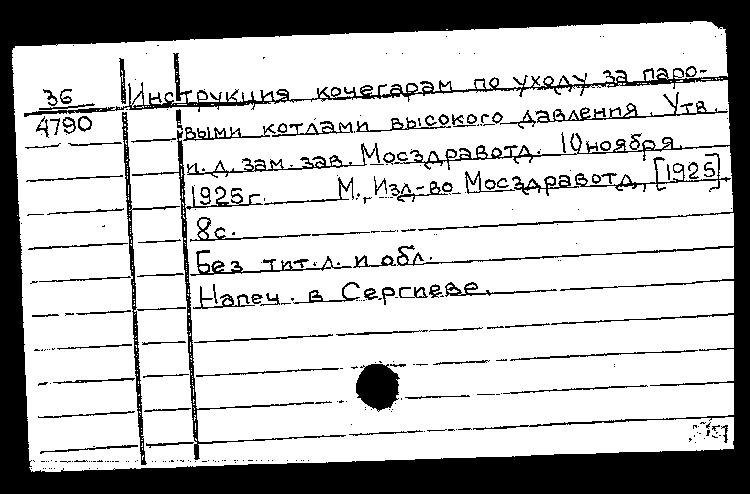 36 Инструкция кочегарам по уходу за паро-
4790 выми котлами высокого давления. Утв.
и.д. зам. зав. Мосздравотд. 10 ноября
1925 г. М., Изд-во Мосздравотд, [1925].
8с.
Без тит.л. и обл.
Напеч. в Сергиеве.